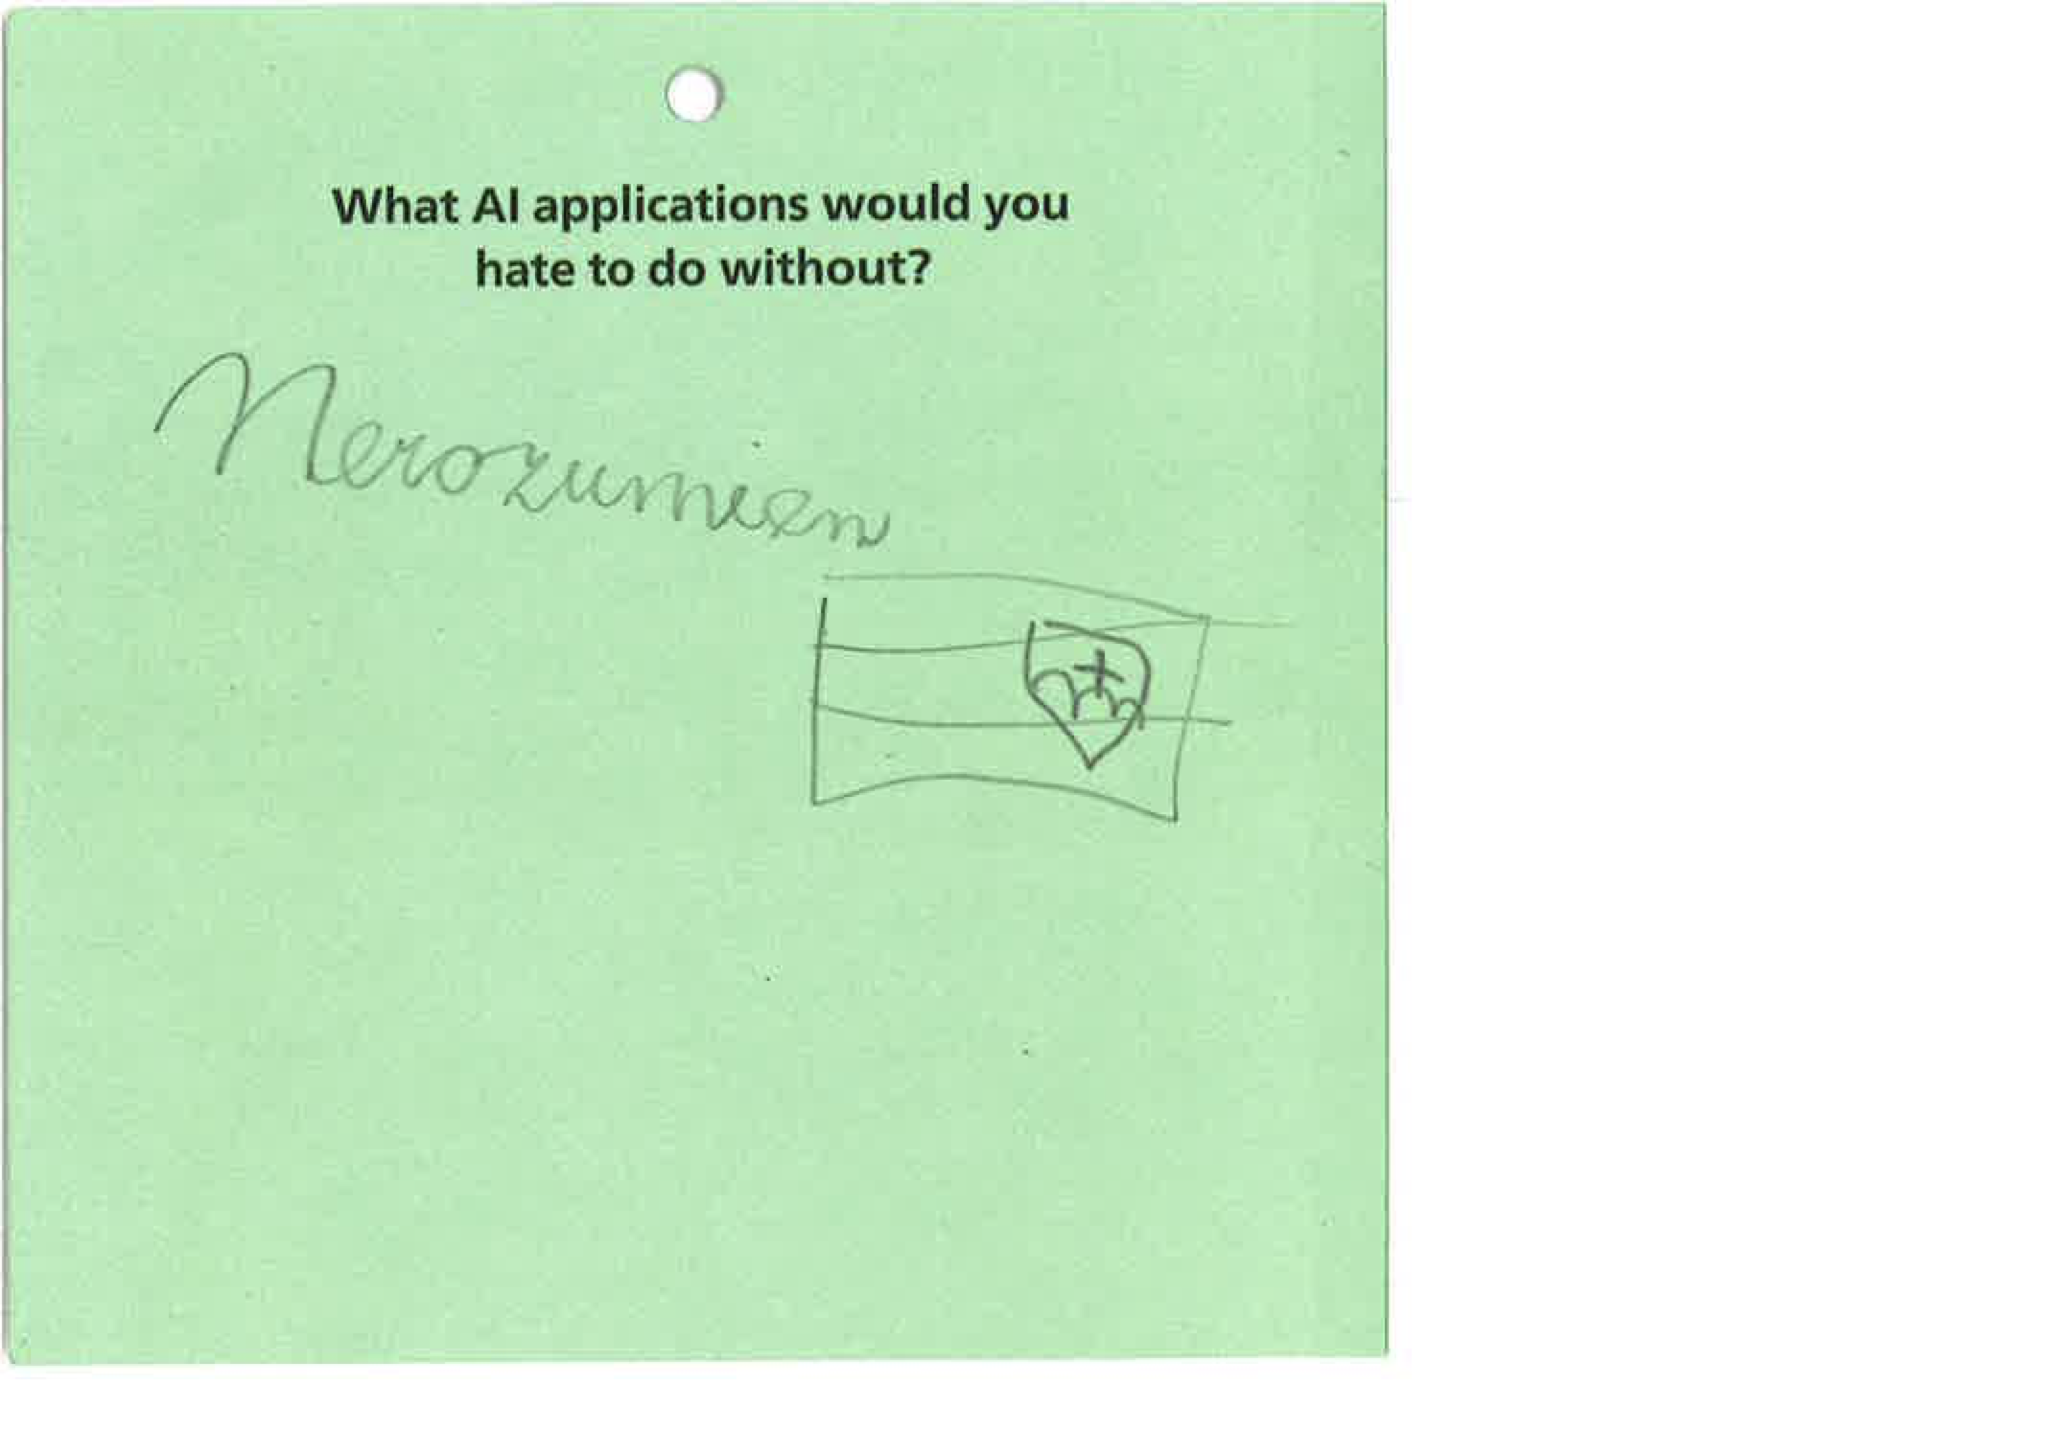 What AI applications would you
hate to do without?
Nerozumiem